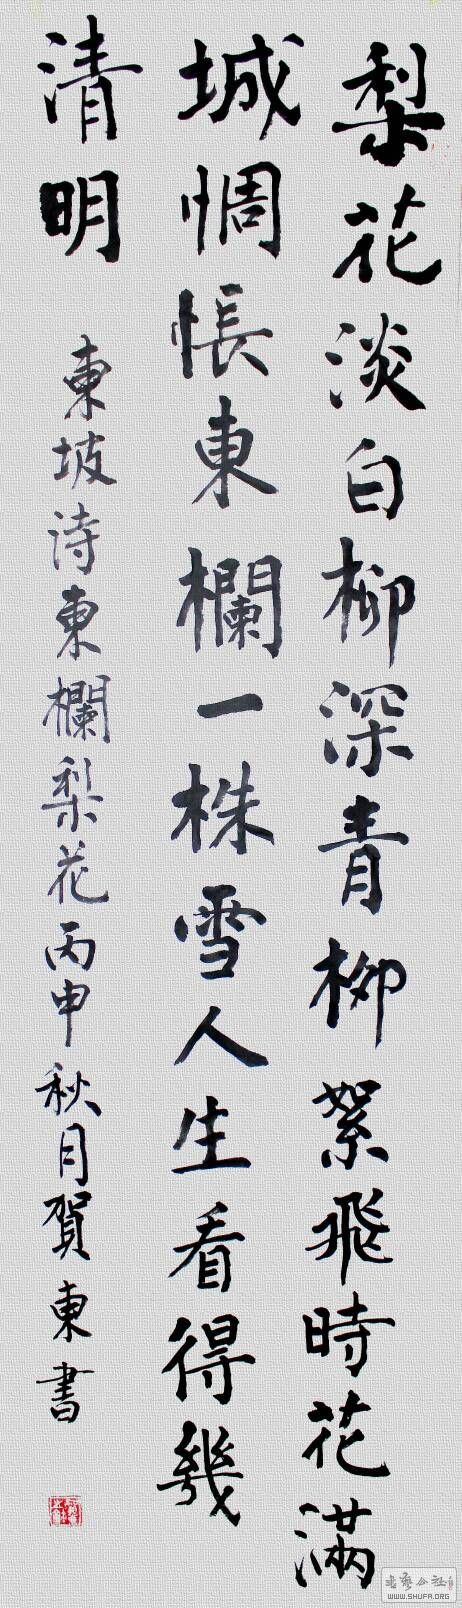 梨花淡白柳深青柳絮飛時花滿
城惆悵東欄一株雪人生看得幾
清明
東坡詩東欄梨花丙申秋月賀東書
WWW.SHUFA.ORG